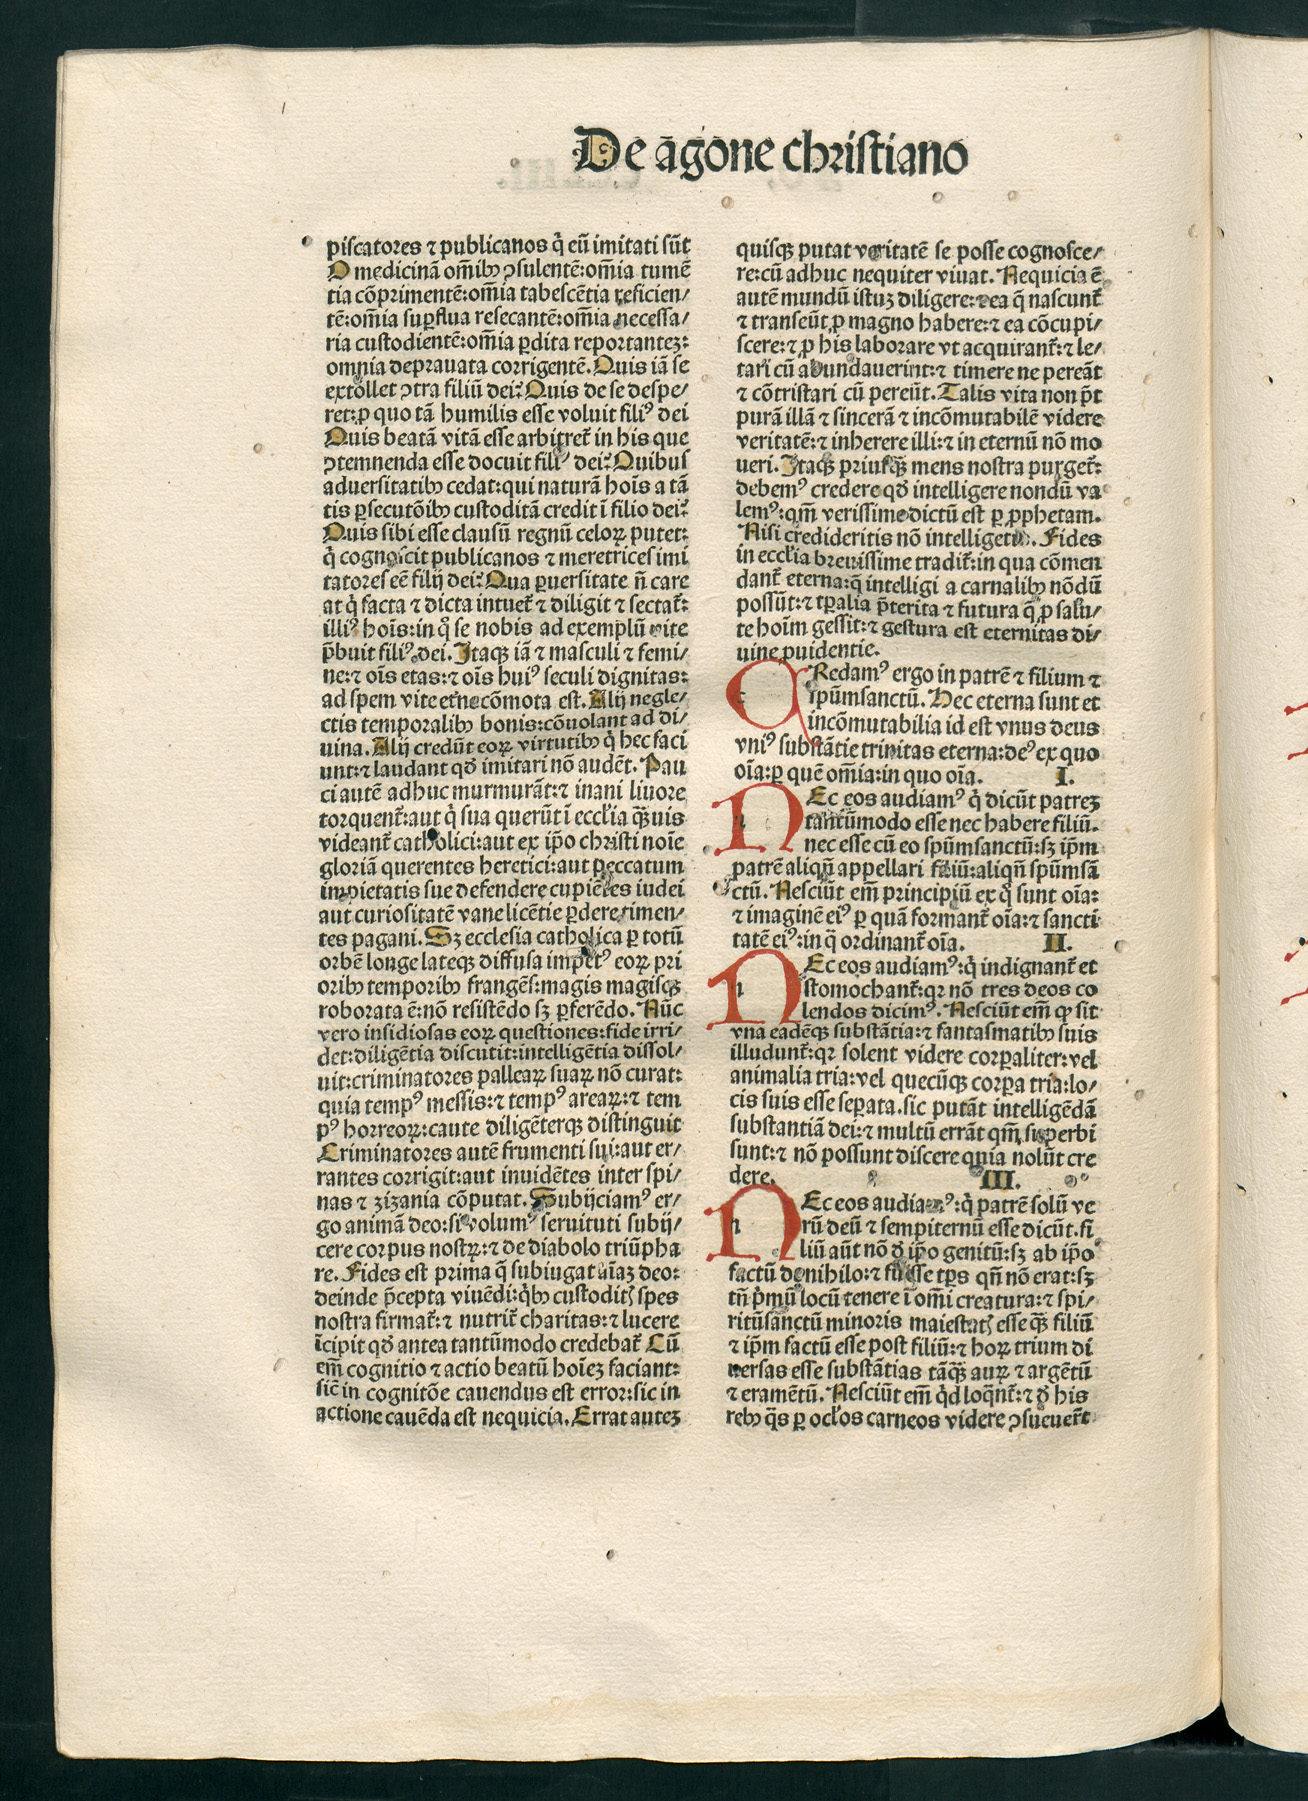 De āgone christiano
piscatores ⁊ publicanos q̇ eū imitati sūt
O medicinā om̄ibꝰ ꝯsulentē:om̄ia tumē
tia cōprimentē:om̄ia tabescētia reficien/
tē:om̄ia suꝑflua resecantē:om̄ia necessa/
ria custodientē:om̄ia ꝑdita reportanteꝫ:
omnia deprauata corrigentē. Quis iā se
extollet ꝯtra filiū dei? Quis de se despe/
ret:ꝓ quo tā humilis esse voluit filiꝰ dei
Quis beatā vitā esse arbitret̄ in his que
ꝯtemnenda esse docuit filiꝰ dei? Quibus
aduersitatibꝫ cedat:qui naturā hoīs a tā
tis ꝑsecutōibꝫ custoditā credit ī filio dei?
Quis sibi esse clausū regnū celoꝝ putet:
q̇ cognoscit publicanos ⁊ meretrices imi
tatores eē filij dei? Qua ꝑuersitate n̄ care
at q̇ facta ⁊ dicta intuet̄ ⁊ diligit ⁊ sectat̄:
illiꝰ hoīs:in qͦ se nobis ad exemplū vite
p̄buit filiꝰ dei. Itaqꝫ iā ⁊ masculi ⁊ femi/
ne:⁊ oīs etas:⁊ oīs huiꝰ seculi dignitas:
ad spem vite et̄ne cōmota est. Alij negle/
ctis temporalibꝫ bonis:cōuolant ad di/
uina. Alij credūt eoꝝ virtutibꝫ q̇ hec faci
unt:⁊ laudant qđ imitari nō audēt. Pau
ci autē adhuc murmurāt:⁊ inani liuore
torquent̄:aut q̇ sua querūt ī eccl̄ia qꝫ̄uis
videant̄ catholici:aut ex ip̄o christi noīe
gloriā querentes heretici:aut peccatum
impietatis sue defendere cupiētes iudei
aut curiositatē vane licētie ꝑdere timen/
tes pagani. Sꝫ ecclesia catholica ꝑ totū
orbē longe lateqꝫ diffusa impetꝰ eoꝝ pri
oribꝫ temporibꝫ frangēs:magis magisqꝫ
roborata ē:nō resistēdo sꝫ ꝑferēdo. Nūc
vero insidiosas eoꝝ questiones:fide irri/
det:diligētia discutit:intelligētia dissol/
uit:criminatores palleaꝝ suaꝝ nō curat:
quia tempꝰ messis:⁊ tempꝰ areaꝝ:⁊ tem
pꝰ horreoꝝ:caute diligēterqꝫ distinguit
Criminatores autē frumenti sui:aut er/
rantes corrigit:aut inuidētes inter spi/
nas ⁊ zizania cōputat. Subijciamꝰ er/
go animā deo:si volumꝰ seruituti subij/
cere corpus nostꝝ:⁊ de diabolo triūpha
re. Fides est prima q̄ subiugat aīaꝫ deo:
deinde p̄cepta viuēdi:q̇bꝫ custoditꝭ spes
nostra firmat̄:⁊ nutrit̄ charitas:⁊ lucere
īcipit qđ antea tantūmodo credebat̄ Cū
em̄ cognitio ⁊ actio beatū hoīeꝫ faciant:
sic̄ in cognitōe cauendus est error:sic in
actione cauēda est nequicia. Errat auteꝫ
quisqꝫ putat veritatē se posse cognosce/
re:cū adhuc nequiter viuat. Nequicia ē
autē mundū istuꝫ diligere:⁊ ea q̄ nascunt̄
⁊ transeūt ꝓ magno habere:⁊ ea cōcupi/
scere:⁊ ꝓ his laborare vt acquirant̄:⁊ le/
tari cū abundauerint:⁊ timere ne pereāt
⁊ cōtristari cū pereūt. Talis vita non p̄t
purā illā ⁊ sincerā ⁊ incōmutabilē videre
veritatē:⁊ inherere illi:⁊ in eternū nō mo
ueri. Itaqꝫ priusqꝫ̄ mens nostra purget̄:
debemꝰ credere qđ intelligere nondū va
lemꝰ:qm̄ verissime dictū est ꝑ ꝓphetam.
Nisi credideritis nō intelligetis. Fides
in eccl̄ia breuissime tradit̄:in qua cōmen
dant̄ eterna:q̄ intelligi a carnalibꝫ nōdū
possūt:⁊ tꝑalia p̄terita ⁊ futura q̄ ꝓ salu/
te hoīm gessit:⁊ gestura est eternitas di/
uine ꝓuidentie.
CRedamꝰ ergo in patrē ⁊ filium ⁊
spūmsanctū. Hec eterna sunt et
incōmutabilia id est vnus deus
vniꝰ substātie trinitas eterna:deꝰ ex quo
oīa:ꝑ quē om̄ia:in quo oīa. I.
NEc eos audiamꝰ q̇ dicūt patreꝫ
tantūmodo esse nec habere filiū.
nec esse cū eo spūmsanctū:sꝫ ip̄m
patrē aliqn̄ appellari filiū:aliqn̄ spūmsā
ctū. Nesciūt em̄ principiū ex qͦ sunt oīa:
⁊ imaginē eiꝰ ꝑ quā formant̄ oīa:⁊ sancti
tatē eiꝰ:in q̄ ordinant̄ oīa. II.
NEc eos audiamꝰ:q̇ indignant̄ et
stomochant̄:qꝛ nō tres deos co
lendos dicimꝰ. Nesciūt em̄ qͥ sit
vna eadēqꝫ substātia:⁊ fantasmatibꝫ suis
illudunt̄:qꝛ solent videre corꝑaliter:vel
animalia tria:vel quecūqꝫ corꝑa tria:lo/
cis suis esse seꝑata.sic putāt intelligēdā
substantiā dei:⁊ multū errāt qm̄ superbi
sunt:⁊ nō possunt discere quia nolūt cre
dere. III.
NEc eos audiamꝰ:q̇ patrē solū ve
rū deū ⁊ sempiternū esse dicūt.fi
liū aūt nō đ ip̄o genitū:sꝫ ab ip̄o
factū de nihilo:⁊ fuisse tꝑs qn̄ nō erat:sꝫ
tn̄ ṗmū locū tenere ī om̄i creatura:⁊ spi/
ritūsanctū minoris maiestatꝭ esse qꝫ̄ filiū
⁊ ip̄m factū esse post filiū:⁊ hoꝝ trium di
uersas esse substātias tāqꝫ̄ auꝝ ⁊ argētū
⁊ eramētū. Nesciūt em̄ q̇d loqn̄t̄:⁊ đ his
rebꝫ q̄s ꝑ ocl̄os carneos videre ꝯsueuer̄t